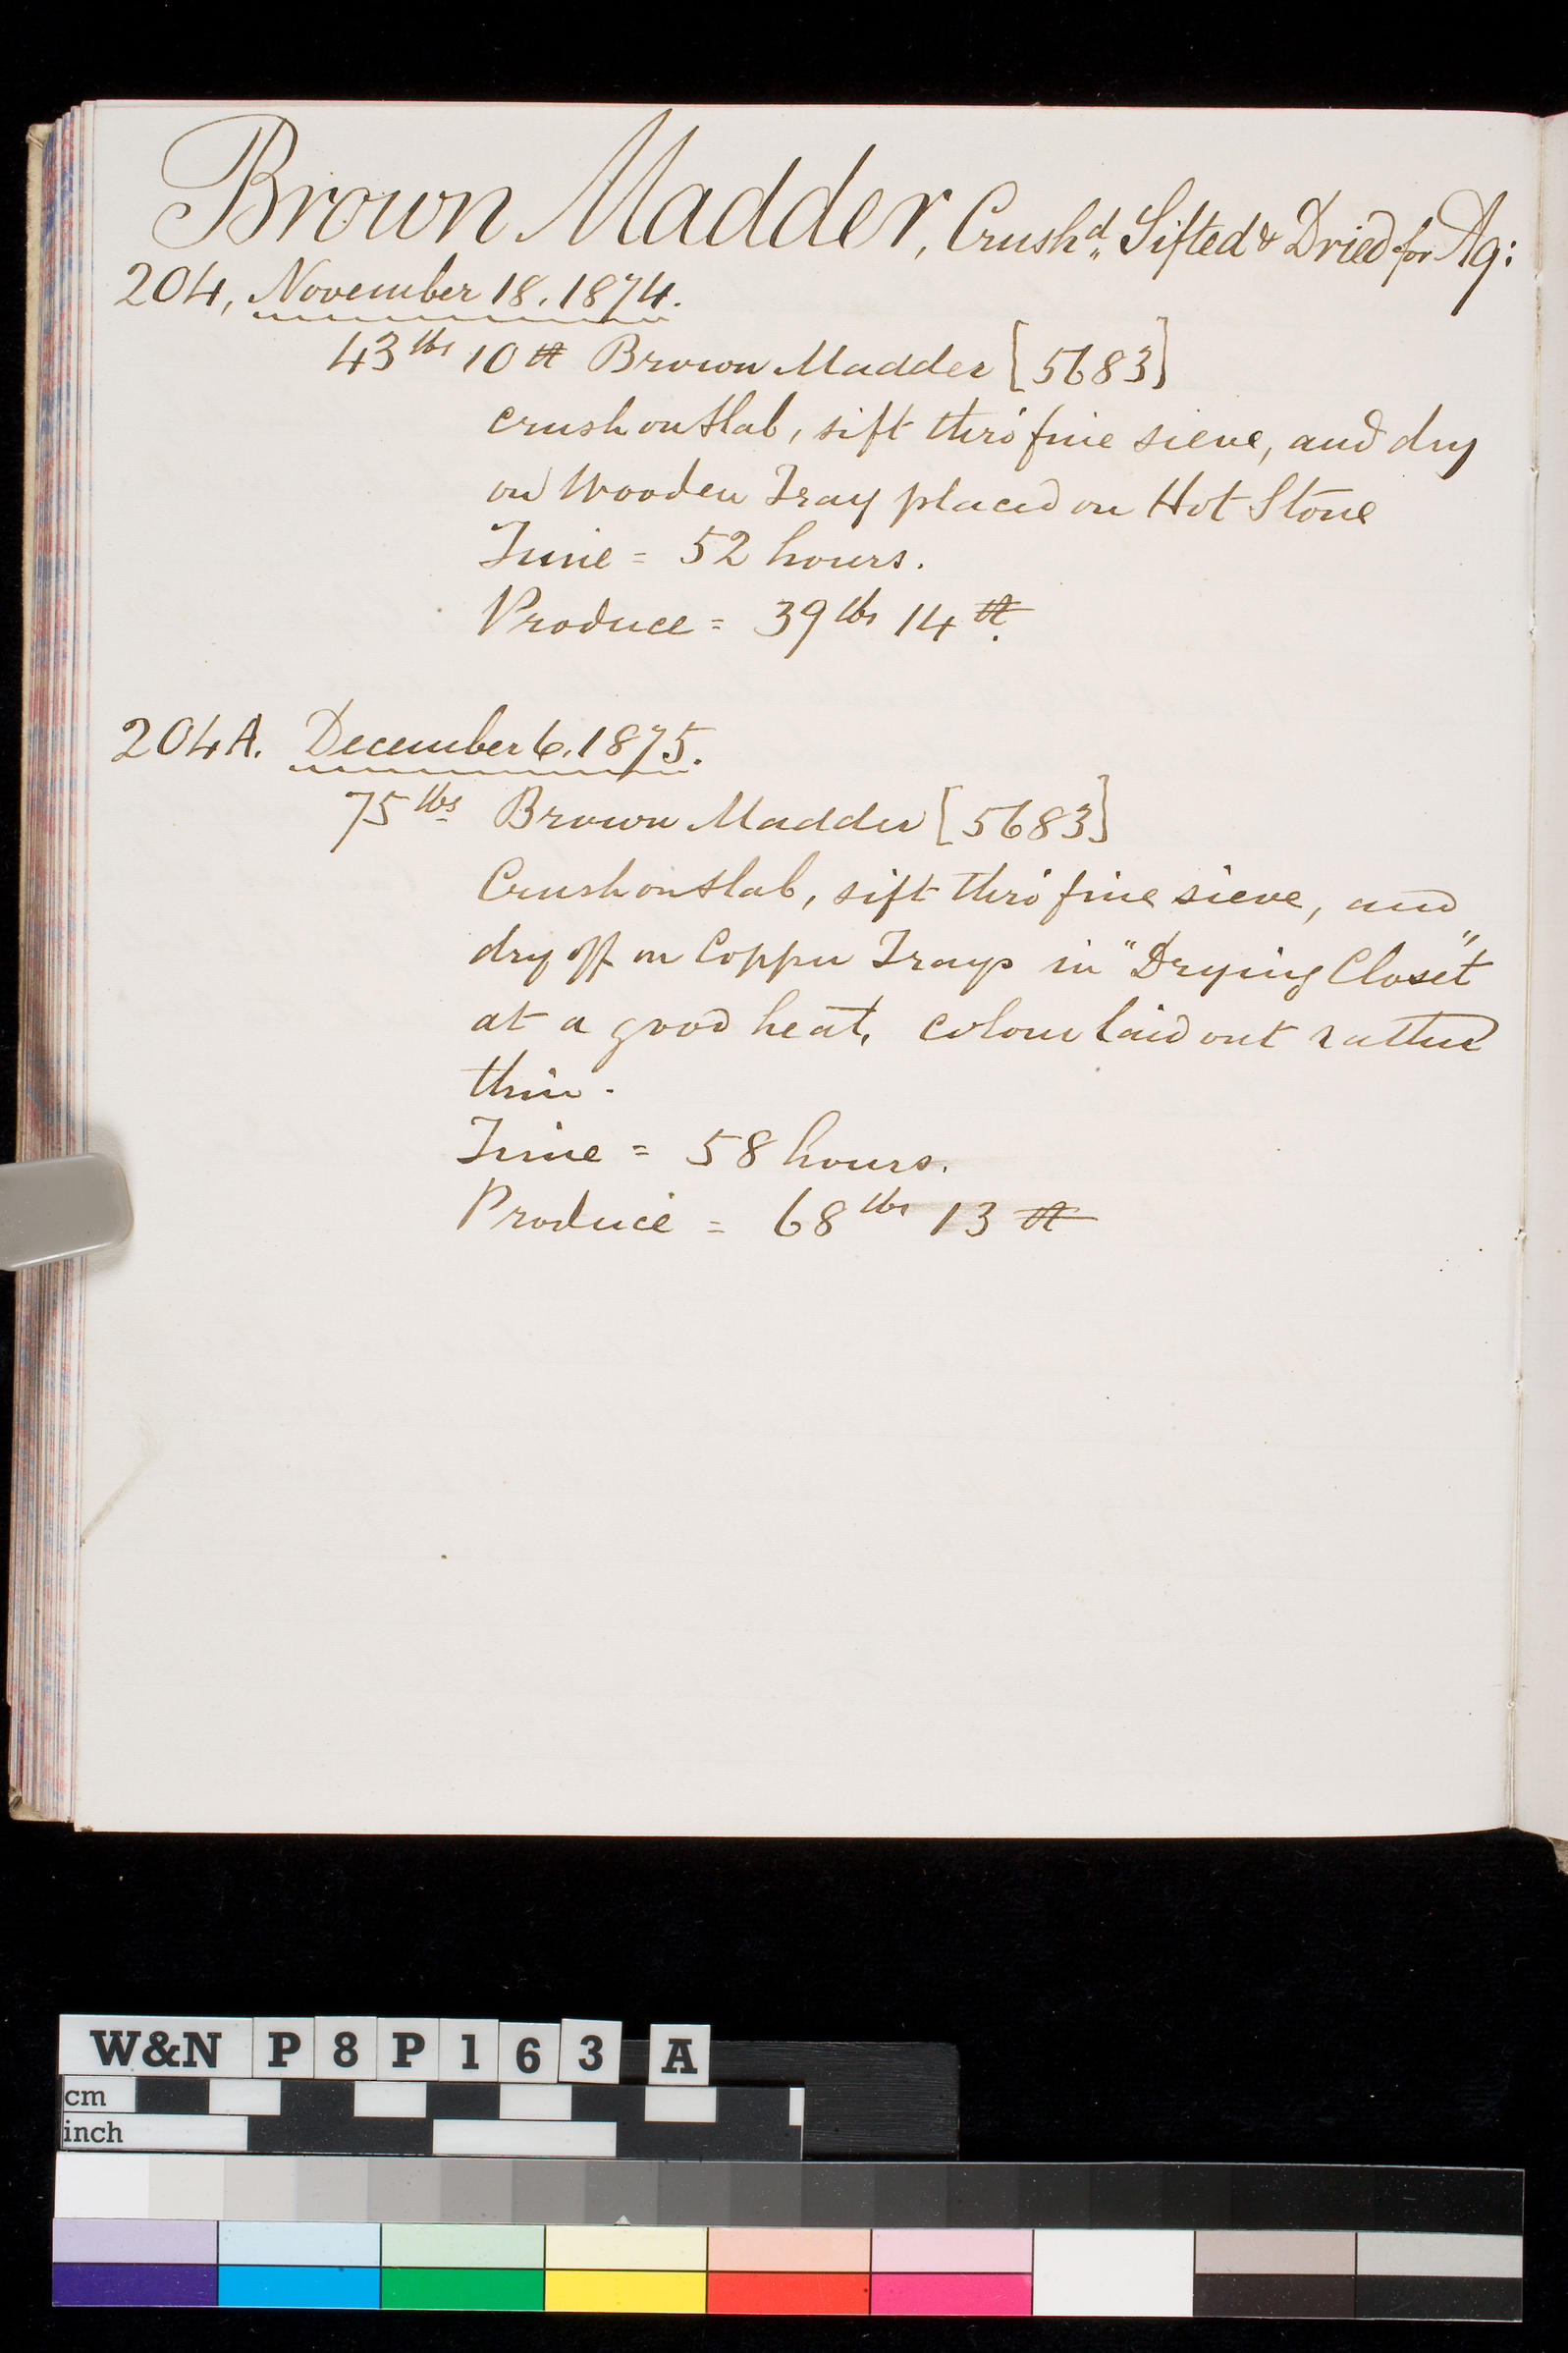 Brown Madder, Crushd Sifted & Dried for Aq:
204, November 18. 1874.
43 lbs 10 Brown Madder [5683]
crush on slab, sift thro' fine sieve, and dry
on Wooden Tray placed on Hot Stone
Time = 52 hours.
Produce = 39 lbs 14
204A. December 6. 1875.
75 lbs Brown Madder [5683]
Crush on slab, sift thro' fine sieve, and
dry off on Copper Trays in "Drying Closet"
at a good heat, colour laid out rather
thin.
Time = 58 hours.
Produce = 68 lbs 13
W&N P8P163 A
cm
inch